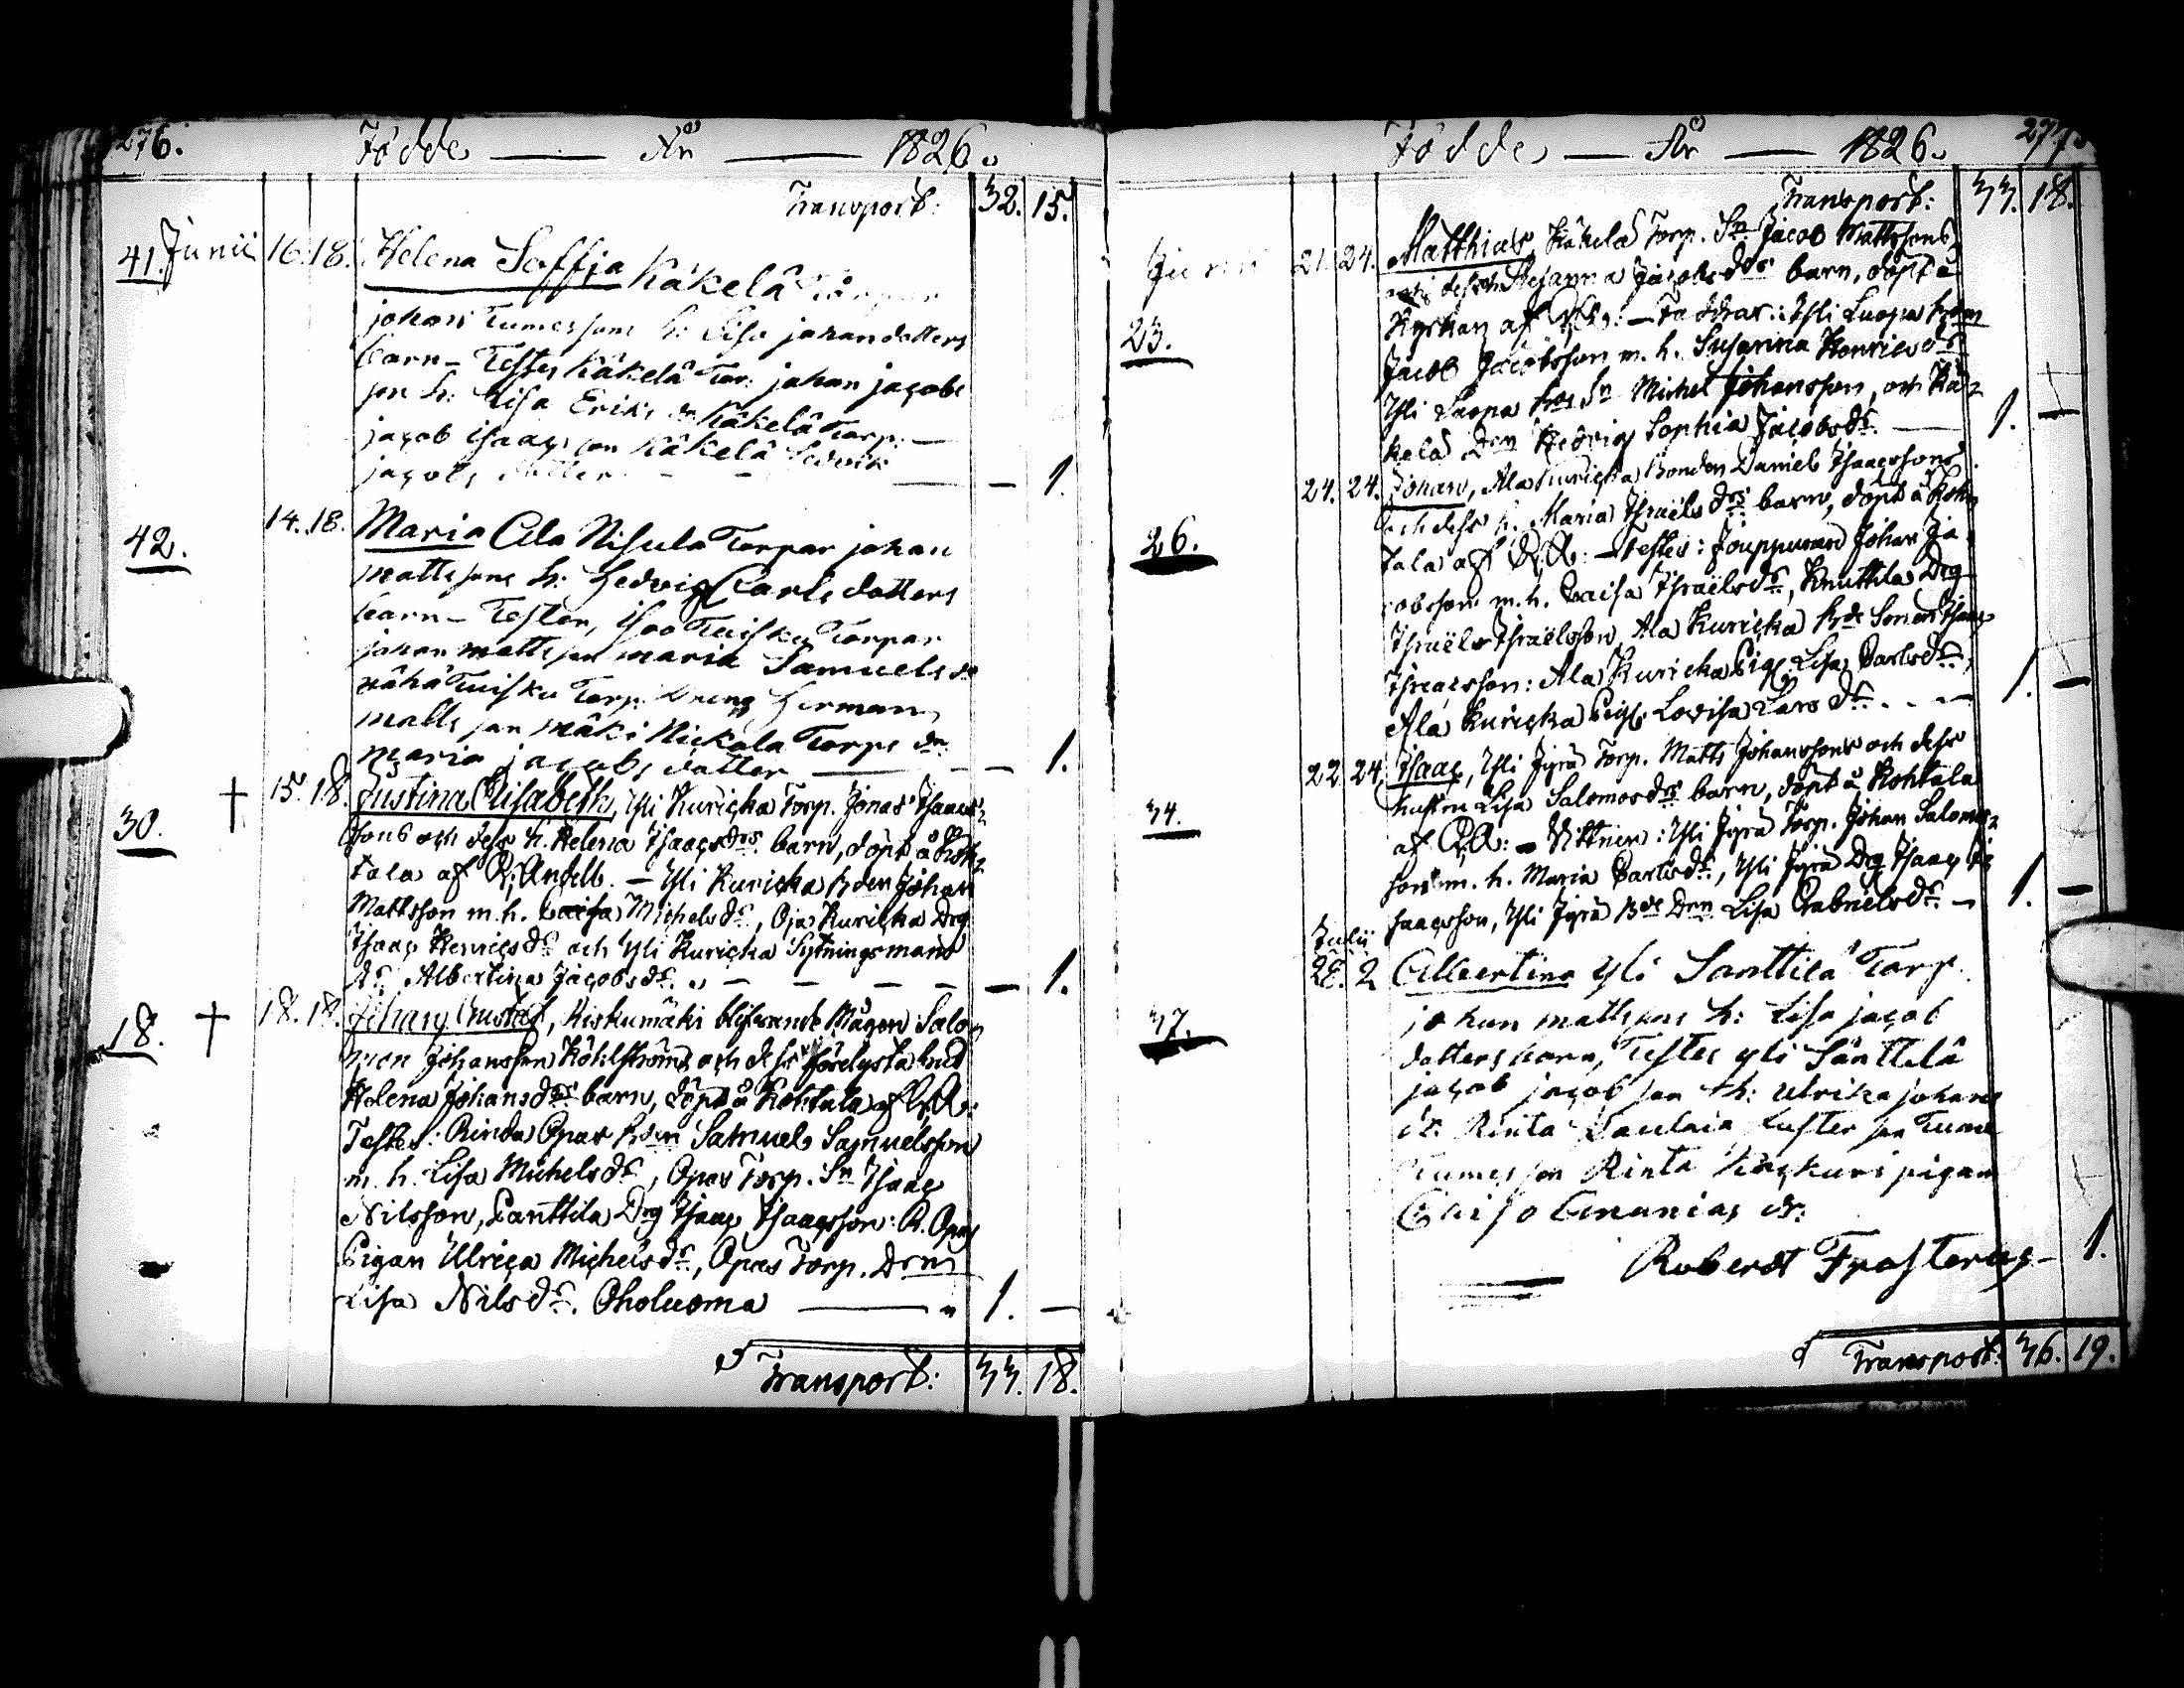 276. Födde — År — 1826.
Transport: 32. 15.
41. Junii 16. 18. Helena Soffia Käkelä
johan Tumessons h: Lisa johandotters
barn — Testes Käkelä Tor: johan jacobs
son h: Lisa Eriks dr Käkelä Torp. —
jacob isaacs son Käkelä Hedvik
jacobs dotter — — — 1.
42. 14. 18. Maria Ala Nisula Torpar johan
matts sons h: Hedvig Carls dotters
barn — Testes, isoo Tuisku Torpar
johan matts son maria Samuels dr
vähä Tuisku Torp. Dreng Herman
matts son mäki Nickola Torps dr
maria jacobs dotter — — — 1.
30. † 15. 18. Justina Elisabeth, Yli Kuricka Torp. Jonas Isaacs-
sons och dess h. Helena Isaacsdrs barn, döpt å Koh-
tala af R. Andell. — Yli Kuricka Bden Johan
Mattsson m. h. Caisa Michelsdr, Oja Kuricka Drg
Isaac Henricsdr och Yli Kuricka Sytningsmans
dr Albertina Jacobsdr. — — — — — 1.
18. † 18. 18. Johan Gustaf, Kiskumäki blifvande Mågen Salo-
mon Johansson Köhlströms och dess förelysta brud
Helena Johansdrs barn, döpt å Kohtala af R.A:
Testes: Rinda Opas Bden Samuel Samuelsson
m. h. Lisa Michelsdr, Opas Torp. Sn Isaac
Nilsson, Panttila Drg Isaac Isaacsson: R. Opas
Pigan Ulrica Michelsdr, Opas Torp. Drn
Lisa Nilsdr. Oholuoma — 1. —
Transport: 33. 18.
Födde — År — 1826. 277.
Transport: 33. 18.
Junii 21. 24. Matthias, Käkelä Torp. Sn Jacob Mattssons
och dess h. Susanna Jacobsdrs barn, döpt i
23. Kyrkan af — Faddrar: Yli Luopa Bden
Jacob Jacobsson m. h. Susanna Henricsdr
Yli Luopa Bds Sn Michel Johansson, och Kä-
kelä Drn Hedvig Sophia Jacobsdr. — 1. —
24. 24. Johan, Ala Kuricka Bonden Daniel Isaacssons
och dess h. Maria Israëlsdrs barn, döpt å Koh-
26. tala af R.A: — Testes: Jouppuran Johan Ja-
cobsson m. h. Caisa Israëlsdr, Knuttila Drg
Israël Israëlsson, Ala Kuricka Bde Sonen Isaac
Isreaelsson: Ala Kuricka Pig. Lisa Carlsdr,
Ala Kuricka Pig. Lovisa Larsdr. — 1. —
22. 24. Isaac, Yli Jyrä Torp. Matts Johanssons och dess
hustru Lisa Salomosdrs barn, döpt å Kohtala
34. af R.A: — Vittnen: Yli Jyrä Torp. Johan Salomos-
son m. h. Maria Carlsdr, Yli Jyrä Drg Isaac I-
saacsson, Yli Jyrä Bde Drn Lisa Gabrielsdr. — 1. —
Julii
28. 2. Albertina yli Santtila Torp.
johan matts sons h: Lisa jacob
37. dotters barn, Testes yli Santtila
jacob jacob son h: ulrika johans
dr. Rinta Paulaia luster son Tume
Tumes son Rinta Kackuri pigan
Caisa Ananias dr.
Roberdt Frosterus — 1.
Transport: 36. 19.